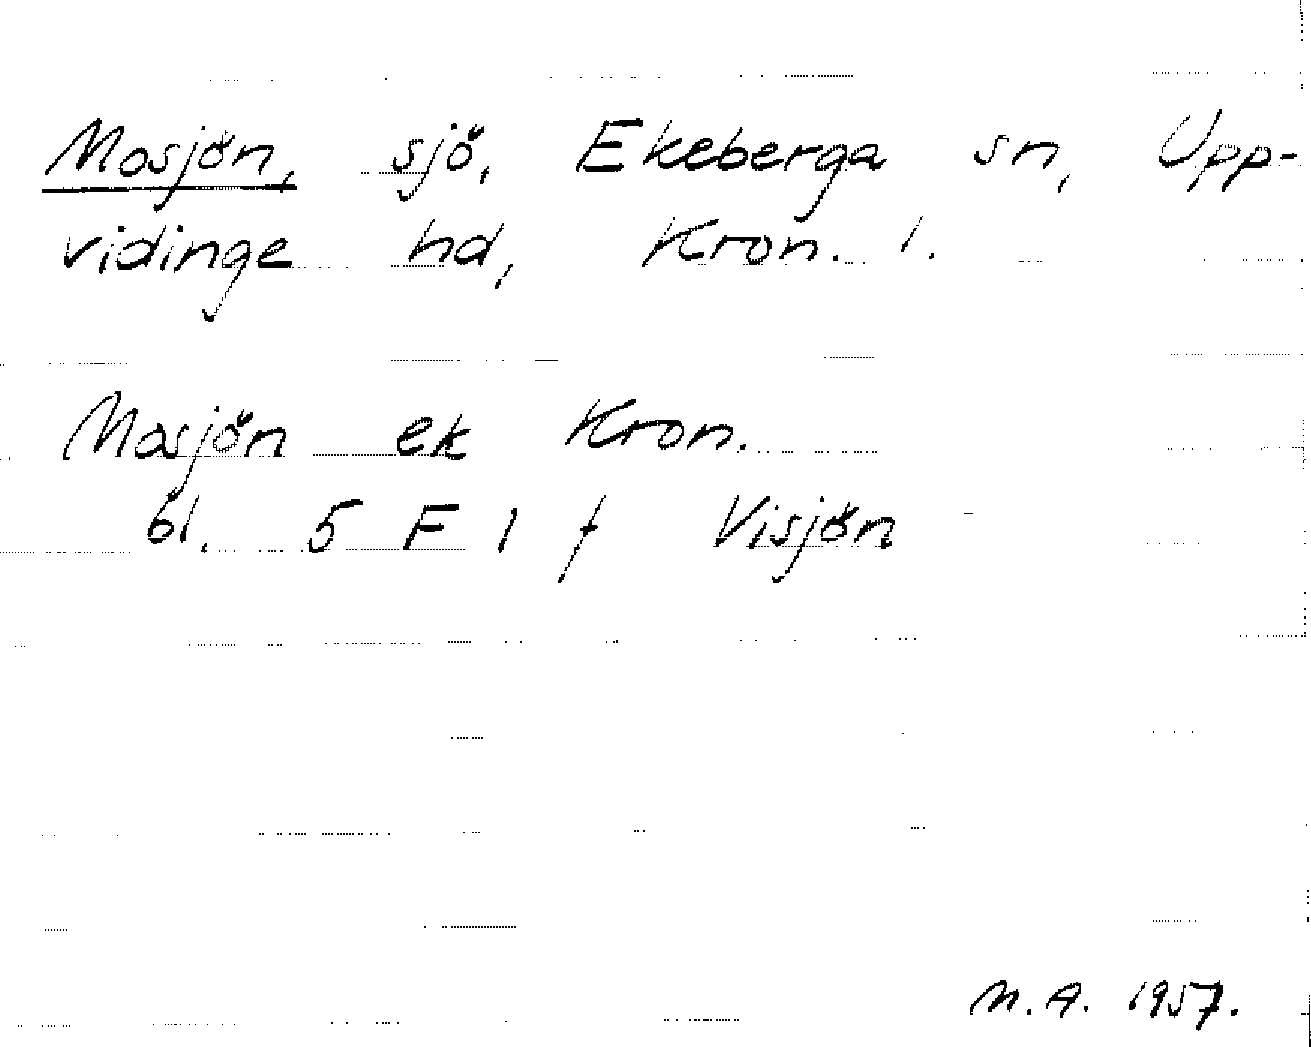 Mosjön, sjö, Ekeberga sn, Upp-
vidinge hd, Kron. l.
Mosjön ek Kron.
bl. 5 F 1 f Visjön
M.A. 1957.